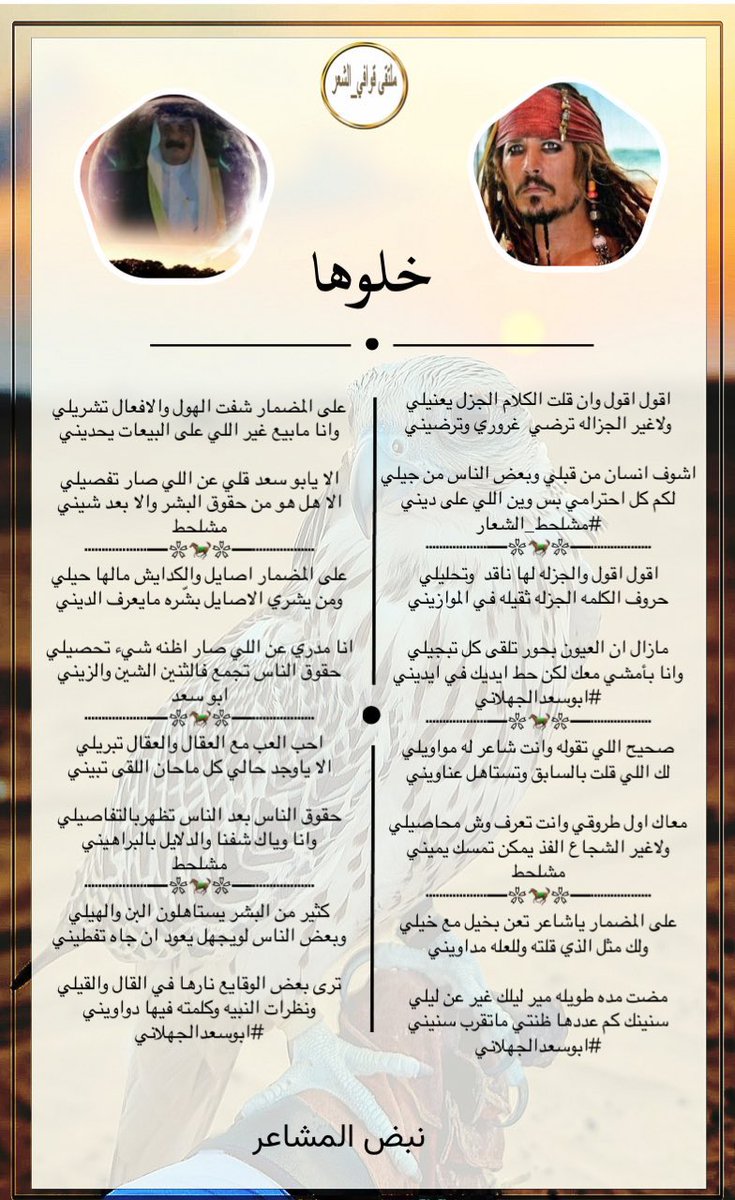 ملتقى قوافي_الشعر
خلوها
اقول اقول وان قلت الكلام الجزل يعنيلي
ولاغير الجزاله ترضي غروري وترضيني
اشوف انسان من قبلي وبعض الناس من جيلي
لكم كل احترامي بس وين اللي على ديني
#مشلحط_الشعار
اقول اقول والجزله لها ناقد وتحليلي
حروف الكلمه الجزله ثقيله في الموازيني
مازال ان العيون بحور تلقى كل تبجيلي
وانا بأمشي معك لكن حط ايديك في ايديني
#ابوسعدالجهلاني
صحيح اللي تقوله وانت شاعر له مواويلي
لك اللي قلت بالسابق وتستاهل عناويني
معاك اول طروقي وانت تعرف وش محاصيلي
ولاغير الشجاع الفذ يمكن تمسك يميني
مشلحط
على المضمار ياشاعر تعن بخيل مع خيلي
ولك مثل الذي قلته وللعله مداويني
مضت مده طويله مير ليلك غير عن ليلي
سنينك كم عددها ظنتي ماتقرب سنيني
#ابوسعدالجهلاني
على المضمار شفت الهول والافعال تشريلي
وانا مابيع غير اللي على البيعات يحديني
الا يابو سعد قلي عن اللي صار تفصيلي
الا هل هو من حقوق البشر والا بعد شيني
مشلحط
على المضمار اصايل والكدايش مالها حيلي
ومن يشري الاصايل بشره مايعرف الديني
انا مدري عن اللي صار اظنه شيء تحصيلي
حقوق الناس تجمع فالثنين الشين والزيني
ابو سعد
احب العب مع العقال والعقال تبريلي
الا ياوجد حالي كل ماحان اللقى تبيني
حقوق الناس بعد الناس تظهربالتفاصيلي
وانا وياك شفنا والدلايل بالبراهيني
مشلحط
كثير من البشر يستاهلون البن والهيلي
وبعض الناس لويجهل يعود ان جاه تفطيني
ترى بعض الوقايع نارها في القال والقيلي
ونظرات النبيه وكلمته فيها دواويني
#ابوسعدالجهلاني
نبض المشاعر